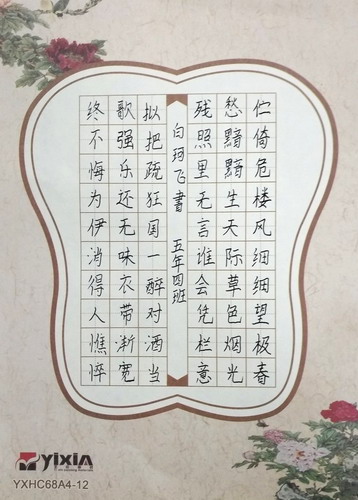 伫倚危楼风细细望极春
愁黯黯生天际草色烟光
残照里无言谁会凭栏意
白珂飞書 五年四班
拟把疏狂图一醉对酒当
歌强乐还无味衣带渐宽
终不悔为伊消得人憔悴
YIXIA
YXHC68A4-12